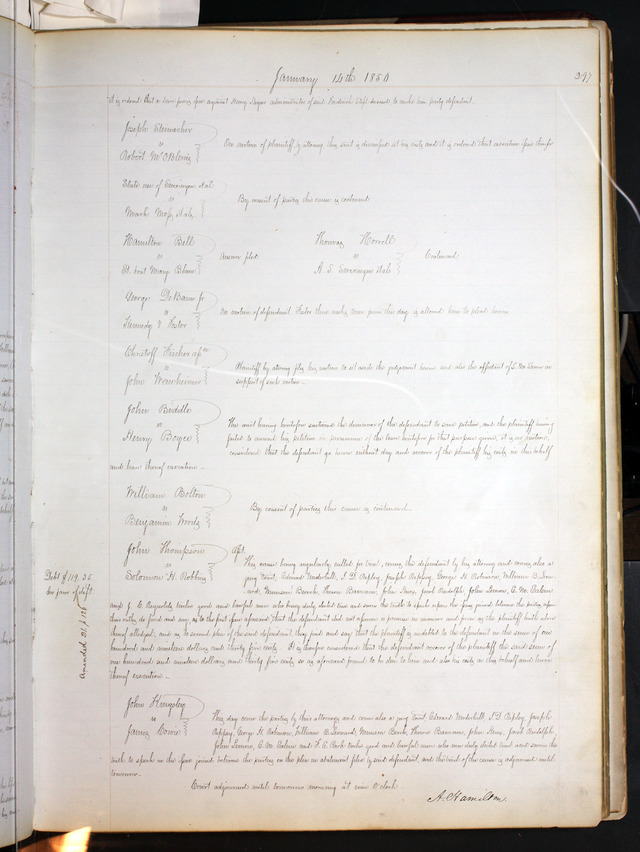 January 14th 1850
297
It is ordered that a Scire facias issue against Henry administrator of said Frederick dept. deceased to make him party defendant.
Joseph
vs
Robert McOBlenis
On motion of plaintiff by attorney this suit is dismissed at his costs and it is ordered that execution issue therefor
State use of et al
vs
Mark et als
By consent of parties this cause is continued
Hamilton Bell
vs
St. boat Mary Blane
Answer filed
Thomas Horrell
vs
A. S. et als
Continued
George DeBaun Jr
vs
Kennedy & Foster
On motion of defendant Foster this day is allowed him to plead herein
Christoff Fischer
vs
John
Plaintiff by attorney files his motion to set aside the judgement herein and also the affidavit of in
support of said motion.
John Biddle
vs
Henry Boyce
The court having heretofore sustained the demurrer of the defendant to said petition, and the plaintiff having
failed to amend his petition in pursuance of the leave heretofore for that purpose given, it is, on motion,
considered that the defendant go hence without day and recover of the plaintiff his costs in this behalf
and have thereof execution.
William Bolton
vs
Benjamin Woods
By consent of parties this cause is continued.
John Thompson
vs
Solomon H. Robbins
Apl.
Debt $119.35
for favor of deft.
Amended
This cause being regularly called for trial, comes the defendant by his attorney and comes also a
jury to wit, Edward Underhill, S. D. Ripley, Joseph George H. Robinson, William B.
Munson Beach, Thomas Bannan, John Jacob Rudolph, John Lemon, E. W.
and J. E. Reynolds twelve good and lawful men who being duly elected tried and sworn the truth to speak upon the issue joined between the parties upon
their oaths do find and say as to the first issue aforesaid that the defendant did not assume or promise in manner and form as the plaintiff hath above
thereof alleged, and as to second plea of the said defendant they find and say that the plaintiff is indebted to the defendant in the sum of one
hundred and nineteen dollars and thirty five cents. It is therefore considered that the defendant recover of the plaintiff the said sum of
one hundred and nineteen dollars and thirty five cents so as aforesaid found to be due to him and also his costs in this behalf and have
thereof execution.
John Kingsley
vs
James Bowie
This day come the parties by their attorneys and comes also a jury to wit, Edward Underhill, S. D. Ripley, Joseph
George H. Robinson, William B. Munson Beach, Thomas Bannan, John Jacob Rudolph,
John Lemon, E. W. and twelve good and lawful men who were duly elected tried and sworn the
truth to speak on the issue joined between the parties on the plea in abatement filed by said defendant, and the trial of this cause is adjourned until
tomorrow.
Court adjourned until tomorrow morning at nine O'clock.
A. Hamilton